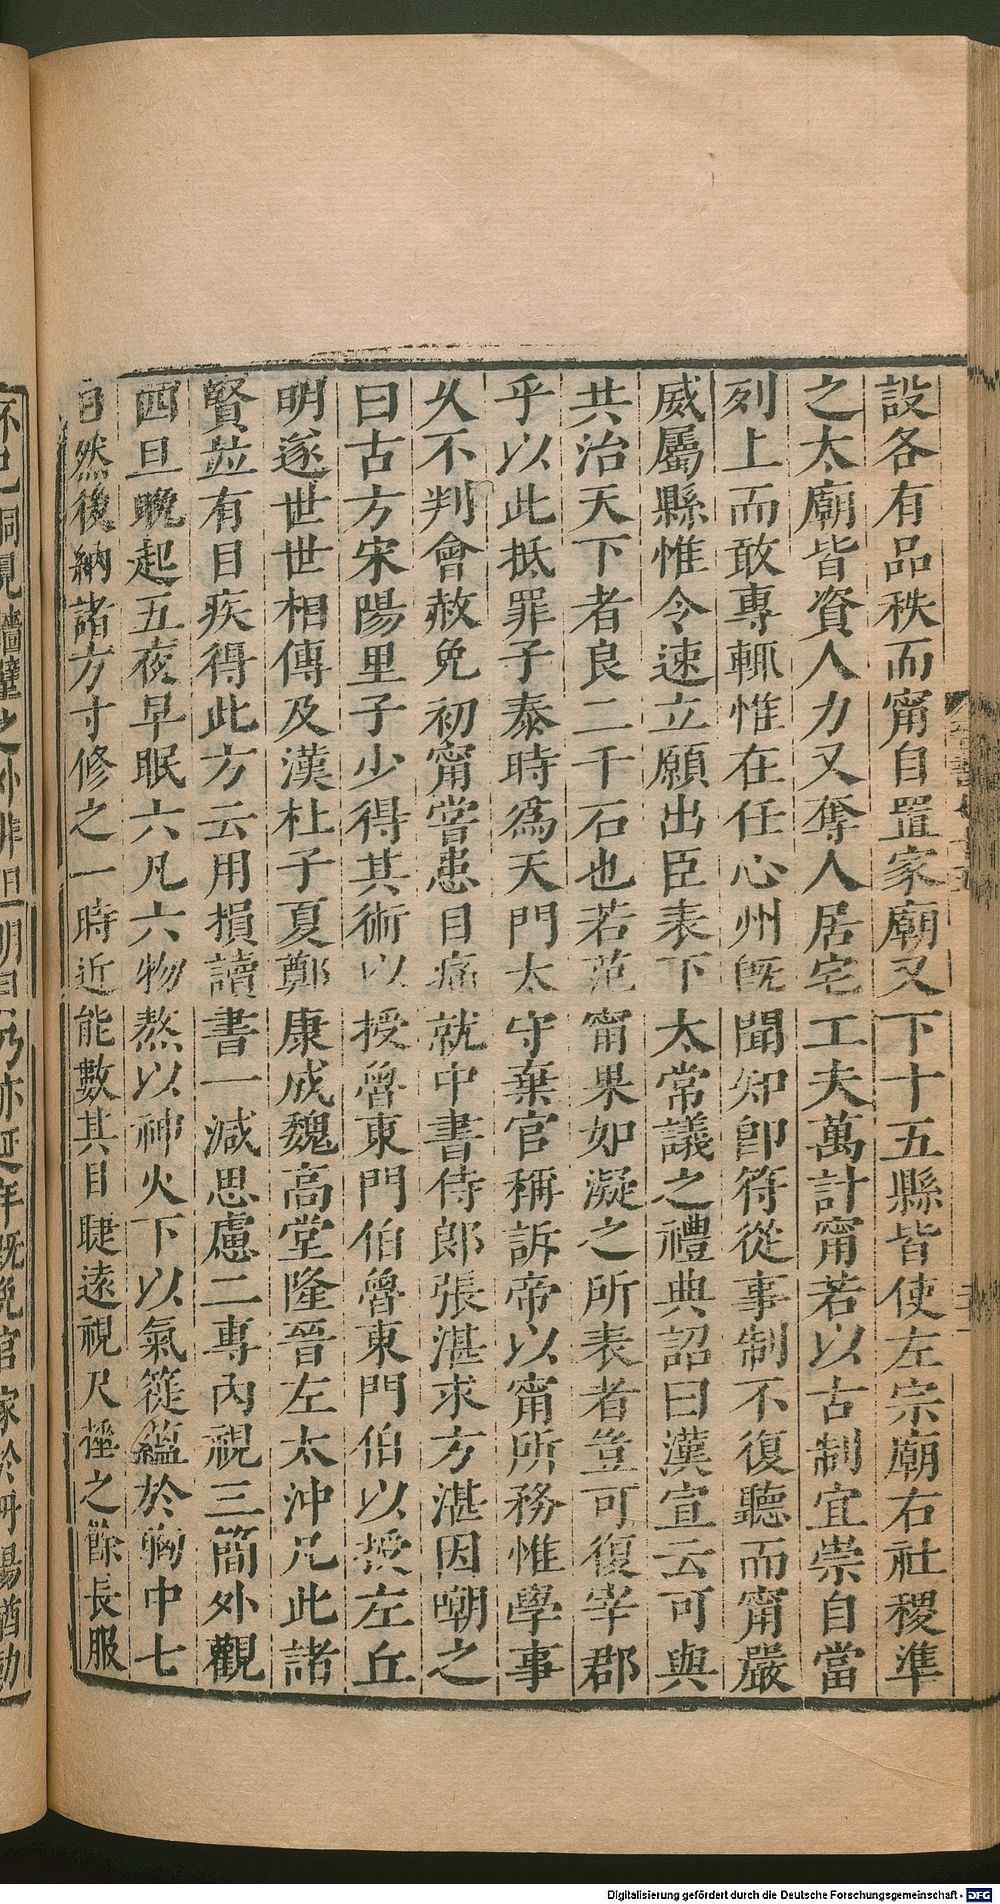 設各有品秩而甯自置家廟又下十五縣皆使左宗廟右社稷準
之太廟皆資人力又奪人居宅工夫萬計甯若以古制宜崇自當
列上而敢專輒惟在任心州旣聞知卽符從事制不復聽而甯嚴
威屬縣惟令速立願出臣表下太常議之禮典詔曰漢宣云可與
共治天下者良二千石也若范甯果如凝之所表者豈可復宰郡
乎以此抵罪子泰時爲天門太守棄官稱訴帝以甯所務惟學事
乆不判會赦免初甯嘗患目痛就中書侍郎張湛求方湛因嘲之
曰古方宋陽里子少得其術以授魯東門伯魯東門伯以授左丘
明遂世世相傳及漢杜子夏鄭康成魏高堂隆晉左太沖凡此諸
賢竝有目疾得此方云用損讀書一減思慮二專內視三簡外觀
四旦晩起五夜早眠六凡六物熬以神火下以氣簁蘊於胷中七
日然後納諸方寸修之一時近能數其目睫遠視尺捶之餘長服
洞見牆壁之外非但明目乃亦延年旣免官家於丹陽猶勤
Digitalisierung gefördert durch die Deutsche Forschungsgemeinschaft - DFG